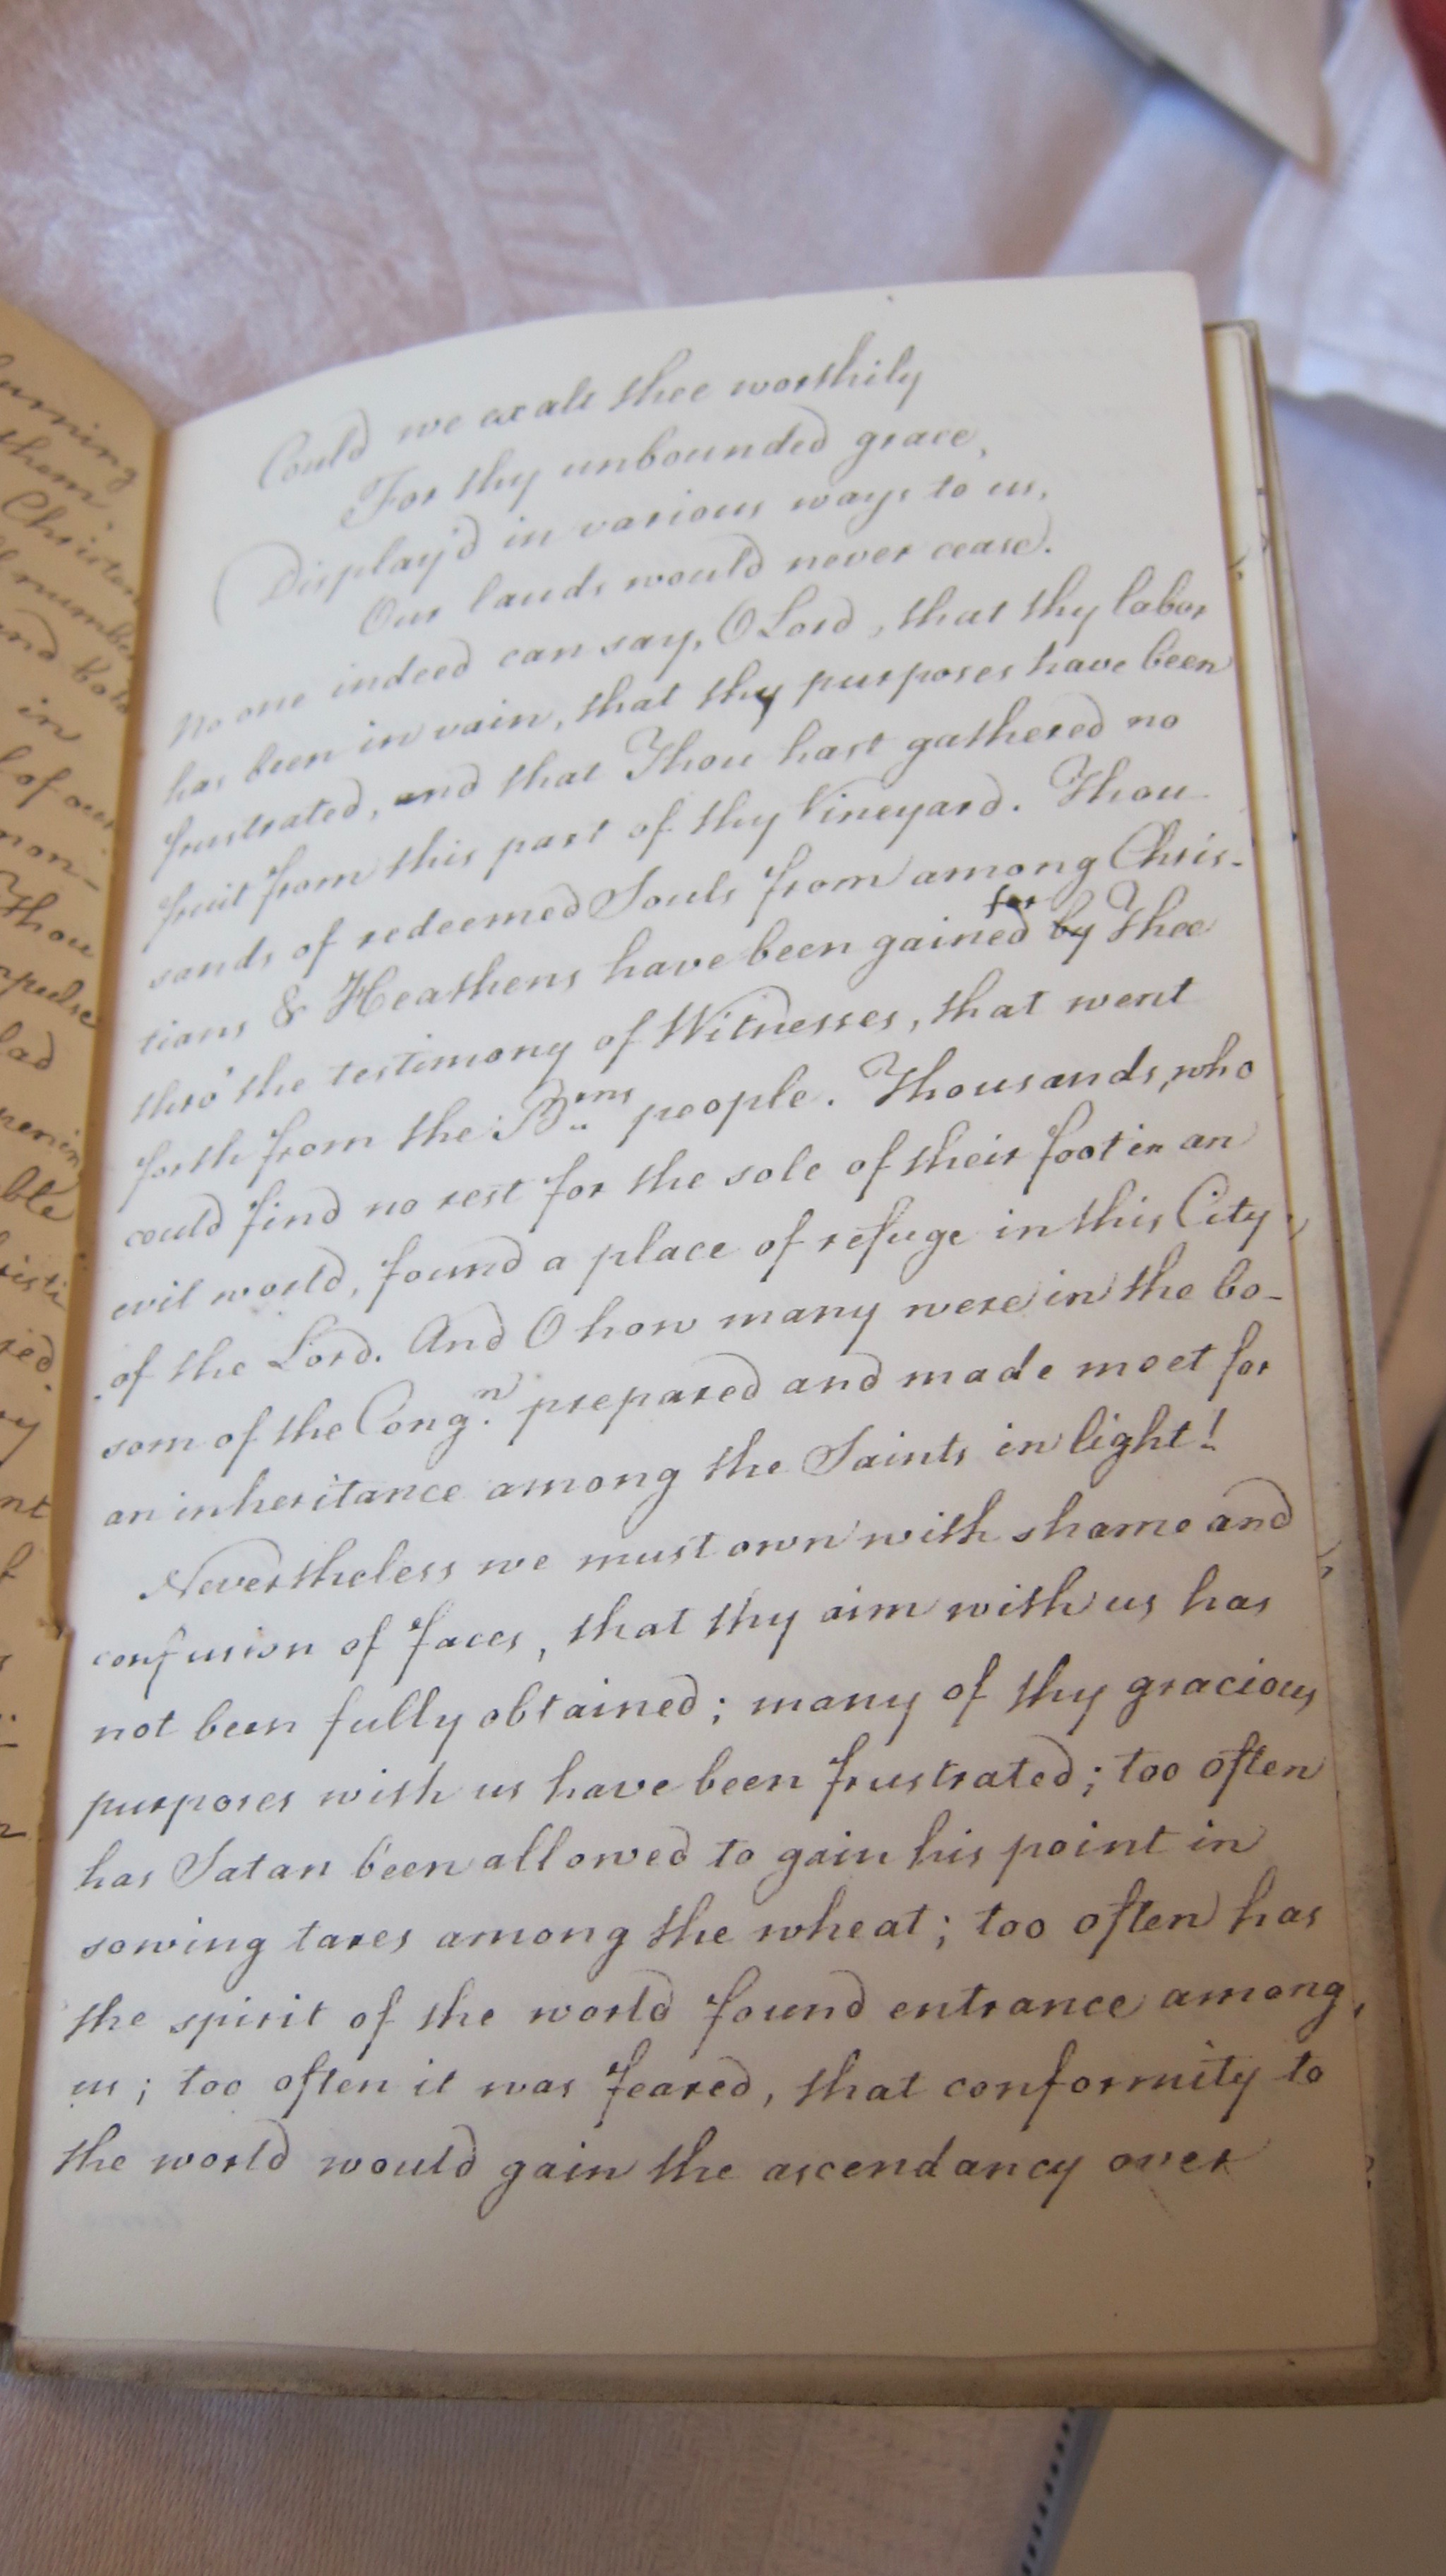 urning
them.
Christen
number
and both
in
of our
mon-
Thou
mpulse
lad
ble
ried.
ry
nt
Could we exalt thee worthily
For thy unbounded grace,
Display'd in various ways to us,
Our lauds would never cease.
No one indeed can say, O Lord, that thy labor
has been in vain, that thy purposes have been
frustrated, and that Thou hast gathered no
fruit from this part of thy Vineyard. Thou
sands of redeemed Souls from among Chris-
for
tians & Heathens have been gained by Thee
thro' the testimony of Witnesses, that went
forth from the Brns people. Thousands, who
could find no rest for the sole of their foot in an
evil world, found a place of refuge in this City
of the Lord. And O how many were in the bo-
som of the Congn. prepared and made meet for
an inheritance among the Saints in light!
Nevertheless we must own with shame and
confusion of faces, that thy aim with us has
not been fully obtained; many of thy gracious
purposes with us have been frustrated; too often
has Satan been allowed to gain his point in
sowing tares among the wheat; too often has
the spirit of the world found entrance among
us; too often it was feared, that conformity to
the world would gain the ascendancy over